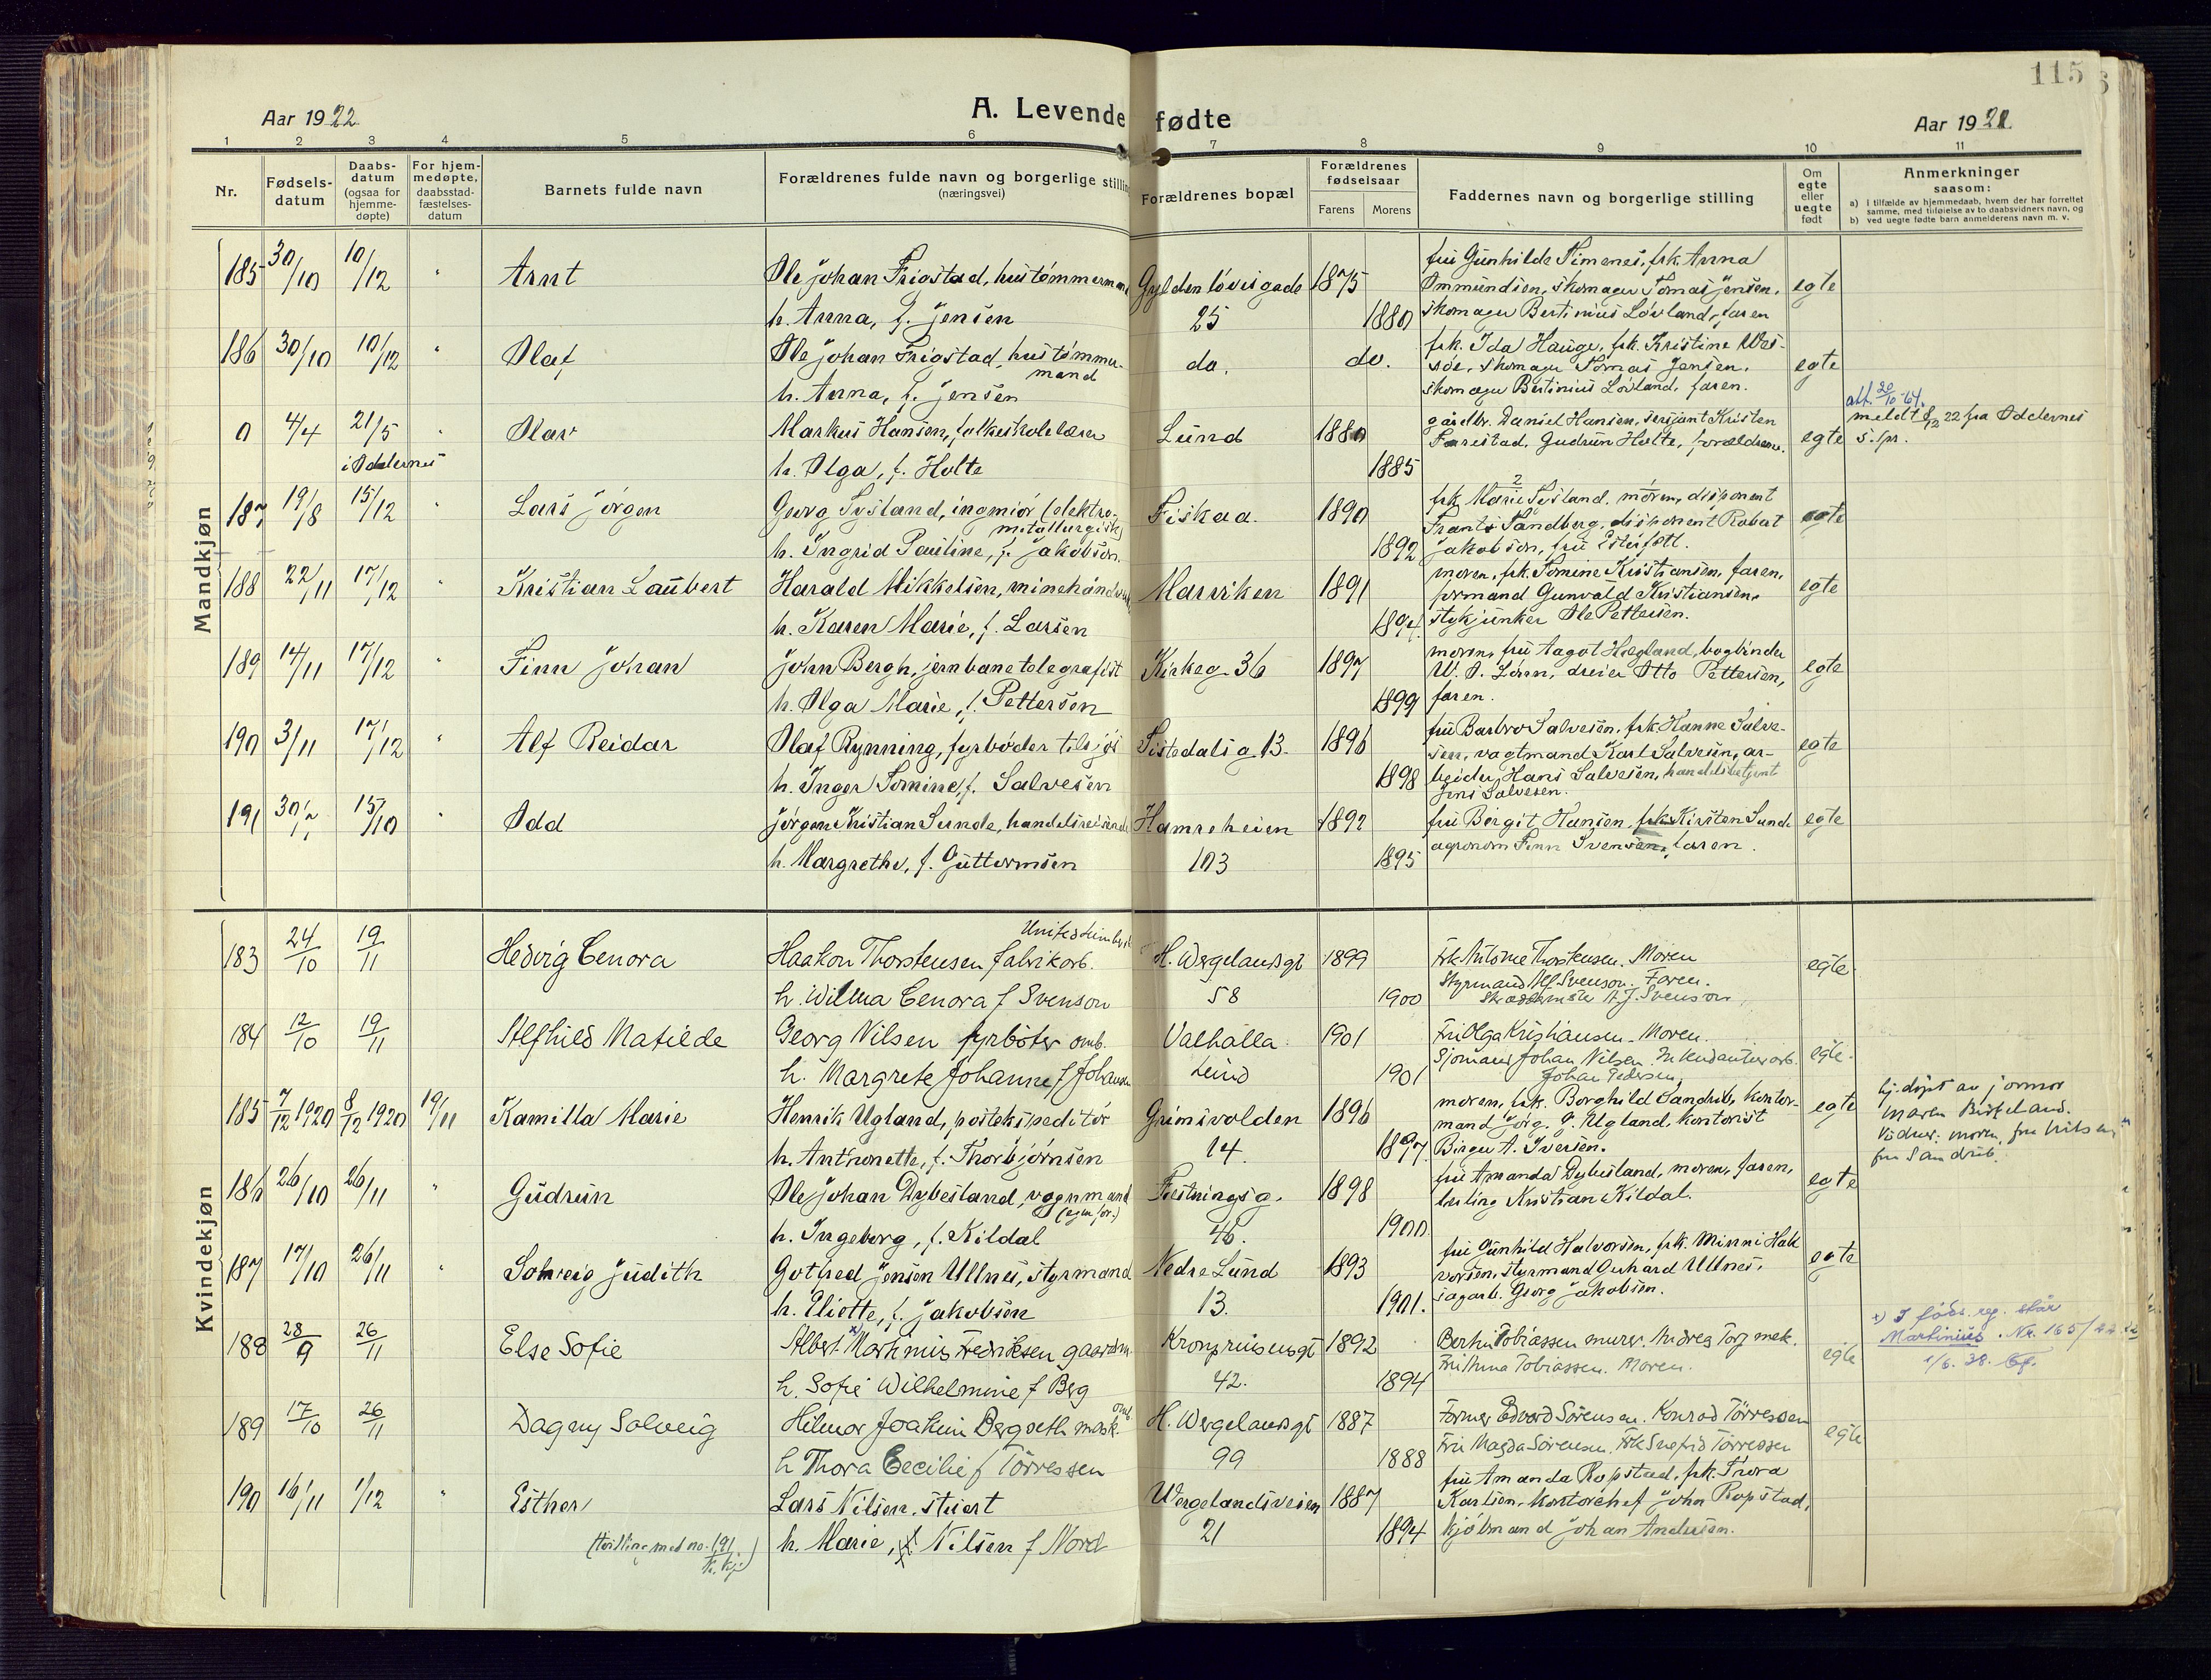 115
Aar 1922
A. Levende fødte
Aar 1922.
1 2 3 4 5 6 7 8 9 10 11
Nr.
Fødsels-
datum
Daabs-
datum
(ogsaa for
hjemme-
døpte)
For hjem-
medøpte,
daabsstad-
fæstelses-
datum
Barnets fulde navn
Forældrenes fulde navn og borgerlige stilling
(næringsvei)
Forældrenes bopæl
Forældrenes
fødselsaar
Farens Morens
Faddernes navn og borgerlige stilling
Om
egte
eller
uegte
født
Anmerkninger
saasom:
a) i tilfælde av hjemmedaab, hvem der har forrettet
samme, med tilføielse av to daabsvidners navn, og
b) ved uegte fødte barn anmelderens navn m. v.
Mandkjøn
185 30/10 10/12 " Arnt
Ole Johan Frigstad, hustømmermand
h. Anna, f. Jensen
Gyldenløvesgade
25
1875
1880
fru Gunhilde Timenes, frk. Anna
Ommundsen, skomager Tomas Jensen,
skomager Bertinius Løvland, faren
egte
186 30/10 10/12 " Olaf
Ole Johan Frigstad, hustømmer-
mand
h. Anna, f. Jensen
do. do.
frk. Ida Hauge, frk. Kristine Wes-
søe, skomager Tomas Jensen,
skomager Bertinius Løvland, faren.
egte
0 4/4 21/5 " Olav
i Oddernes
Markus Hansen, folkeskolelærer
h. Olga, f. Holte
Lund
1880
1885
gårdbr. Daniel Hansen, sersjant Kristen
Farestad, Gudrun Holte, forældrene.
egte
att. 20/10-64.
meldt 8/12 22 fra Oddernes
s. spr.
187 19/8 15/12 " Lars Jørgen
Georg Sysland, ingeniør (elektro-
metallurgisk)
h. Ingrid Pauline, f. Jakobsen.
Fiskaa.
1890
1892
frk. Marie Sysland, moren, disponent
Frants Sandberg, disponent Robert
Jakobsen, fru Ester
egte
188 22/11 17/12 " Kristian Laubert
Harald Mikkelsen,
h. Karen Marie, f. Larsen
Marviken
1891
1894.
moren, frk. Tomine Kristiansen, faren,
formand Gunvald Kristiansen,
stykjunker Ole Pettersen.
egte
189 14/11 17/12 " Finn Johan
John Bergh, jernbanetelegrafist
h. Olga Marie, f. Pettersen
Kirkeg. 36
1897
1899
moren, fru Aagot Hægland, bogbinder
W. O. Lönn, dreier Otto Pettersen,
faren.
egte
190 3/11 17/12 " Alf Reidar
Olaf Rynning, fyrbøder tilsjøs
h. Inger Tomine, f. Salvesen
Tistedalsg. 13.
1896
1898
fru Barbro Salvesen, frk. Hanne Salve-
sen, vagtmand Karl Salvesen, ar-
beider Hans Salvesen, handelsbetjent
Jens Salvesen.
egte
191 15/10 Odd
Jørgen Kristian Sunde, handelsreisende
h. Margrethe, f. Guttormsen
Hamreheien
103
1892
1895
fru Bergit Hansen, frk. Kirsten Sunde
agronom Finn Svensen, faren.
egte
Kvindekjøn
183 24/10 19/11 Hedvig Cenora
Haakon Thorstensen fabrikarb.
h. Wilma Cenora f Svenson
H. Wergelandsgt
58
1899
1900
Frk. Thorstensen. Moren
Styrmand Alf Svenson. Faren.
A. J. Svenson.
egte
184 12/10 19/11 Alfhild Matilde
Georg Nilsen fyrbøter omb.
h. Margrete Johanne f Johansen
Valhalla
Lund
1901
1901
Fru Olga Kristiansen. Moren.
Sjømand Johan Nilsen. Intendanturarb.
Johan Pedersen.
egte.
185 7/12 1920 8/12 1920 19/11 Kamilla Marie
Henrik Ugland, postekspeditør
h. Anthonette, f. Thorbjørnsen
Grimsvolden
14.
1896
1897
moren, frk. Borghild Sandrib, kontor-
mand Jørg. J. Ugland, kontorist
Birger A. Iversen.
egte
hj.døpt av jormor
Maren Birkeland.
Vidner: moren, fru Nilsen,
fru Sandrib.
186 26/10 26/11 " Gudrun
Ole Johan Dybesland, vognmand
(egen for.)
h. Ingeborg, f. Kildal
Festningsg.
46.
1898
1900.
fru Amanda Dybesland, moren, faren,
lærling Kristian Kildal.
egte
187 17/10 26/11 " Solveig Judith
Gotfred Jensen Ullnes, styrmand
h. Eliette, f. Jakobsen
Nedre Lund
13.
1893
1901.
fru Gunhild Halvorsen, frk. Minni Hal-
vorsen, styrmand Gerhard Ullnes,
sagarb. Georg Jakobsen.
egte
188 28/9 26/11 Else Sofie
Albert x) Martinius Fredriksen gaardm.
h. Sofie Wilhelmine f Berg
Kronprinsensgt
42.
1892
1894
Tobiassen murer. Andreas Torp mek.
Fru Anna Tobiassen. Moren.
egte
x) I føds. reg. står
Martinius. Nr. 165/22
1/6. 38.
189 17/10 26/11 Dagny Solveig
Hilmar Joakim Bergseth mask.
omb.
h Thora Cecilie f Tørressen
H. Wergelandsgt
99
1887
1888
Former Edvard Sørensen. Konrad Tørressen
Fru Magda Sørensen. Frk Snefrid Tørressen
egte
190 16/11 1/12 " Esther
(tvilling med no. 191
K. kj.)
Lars Nilsen, stuert
h. Marie, f. Nilsen f Nord
Wergelandsveien
21
1887
1894
fru Amanda Ropstad, frk. Thora
Karlsen, kontorchef John Ropstad,
kjølmand Johan Andersen.